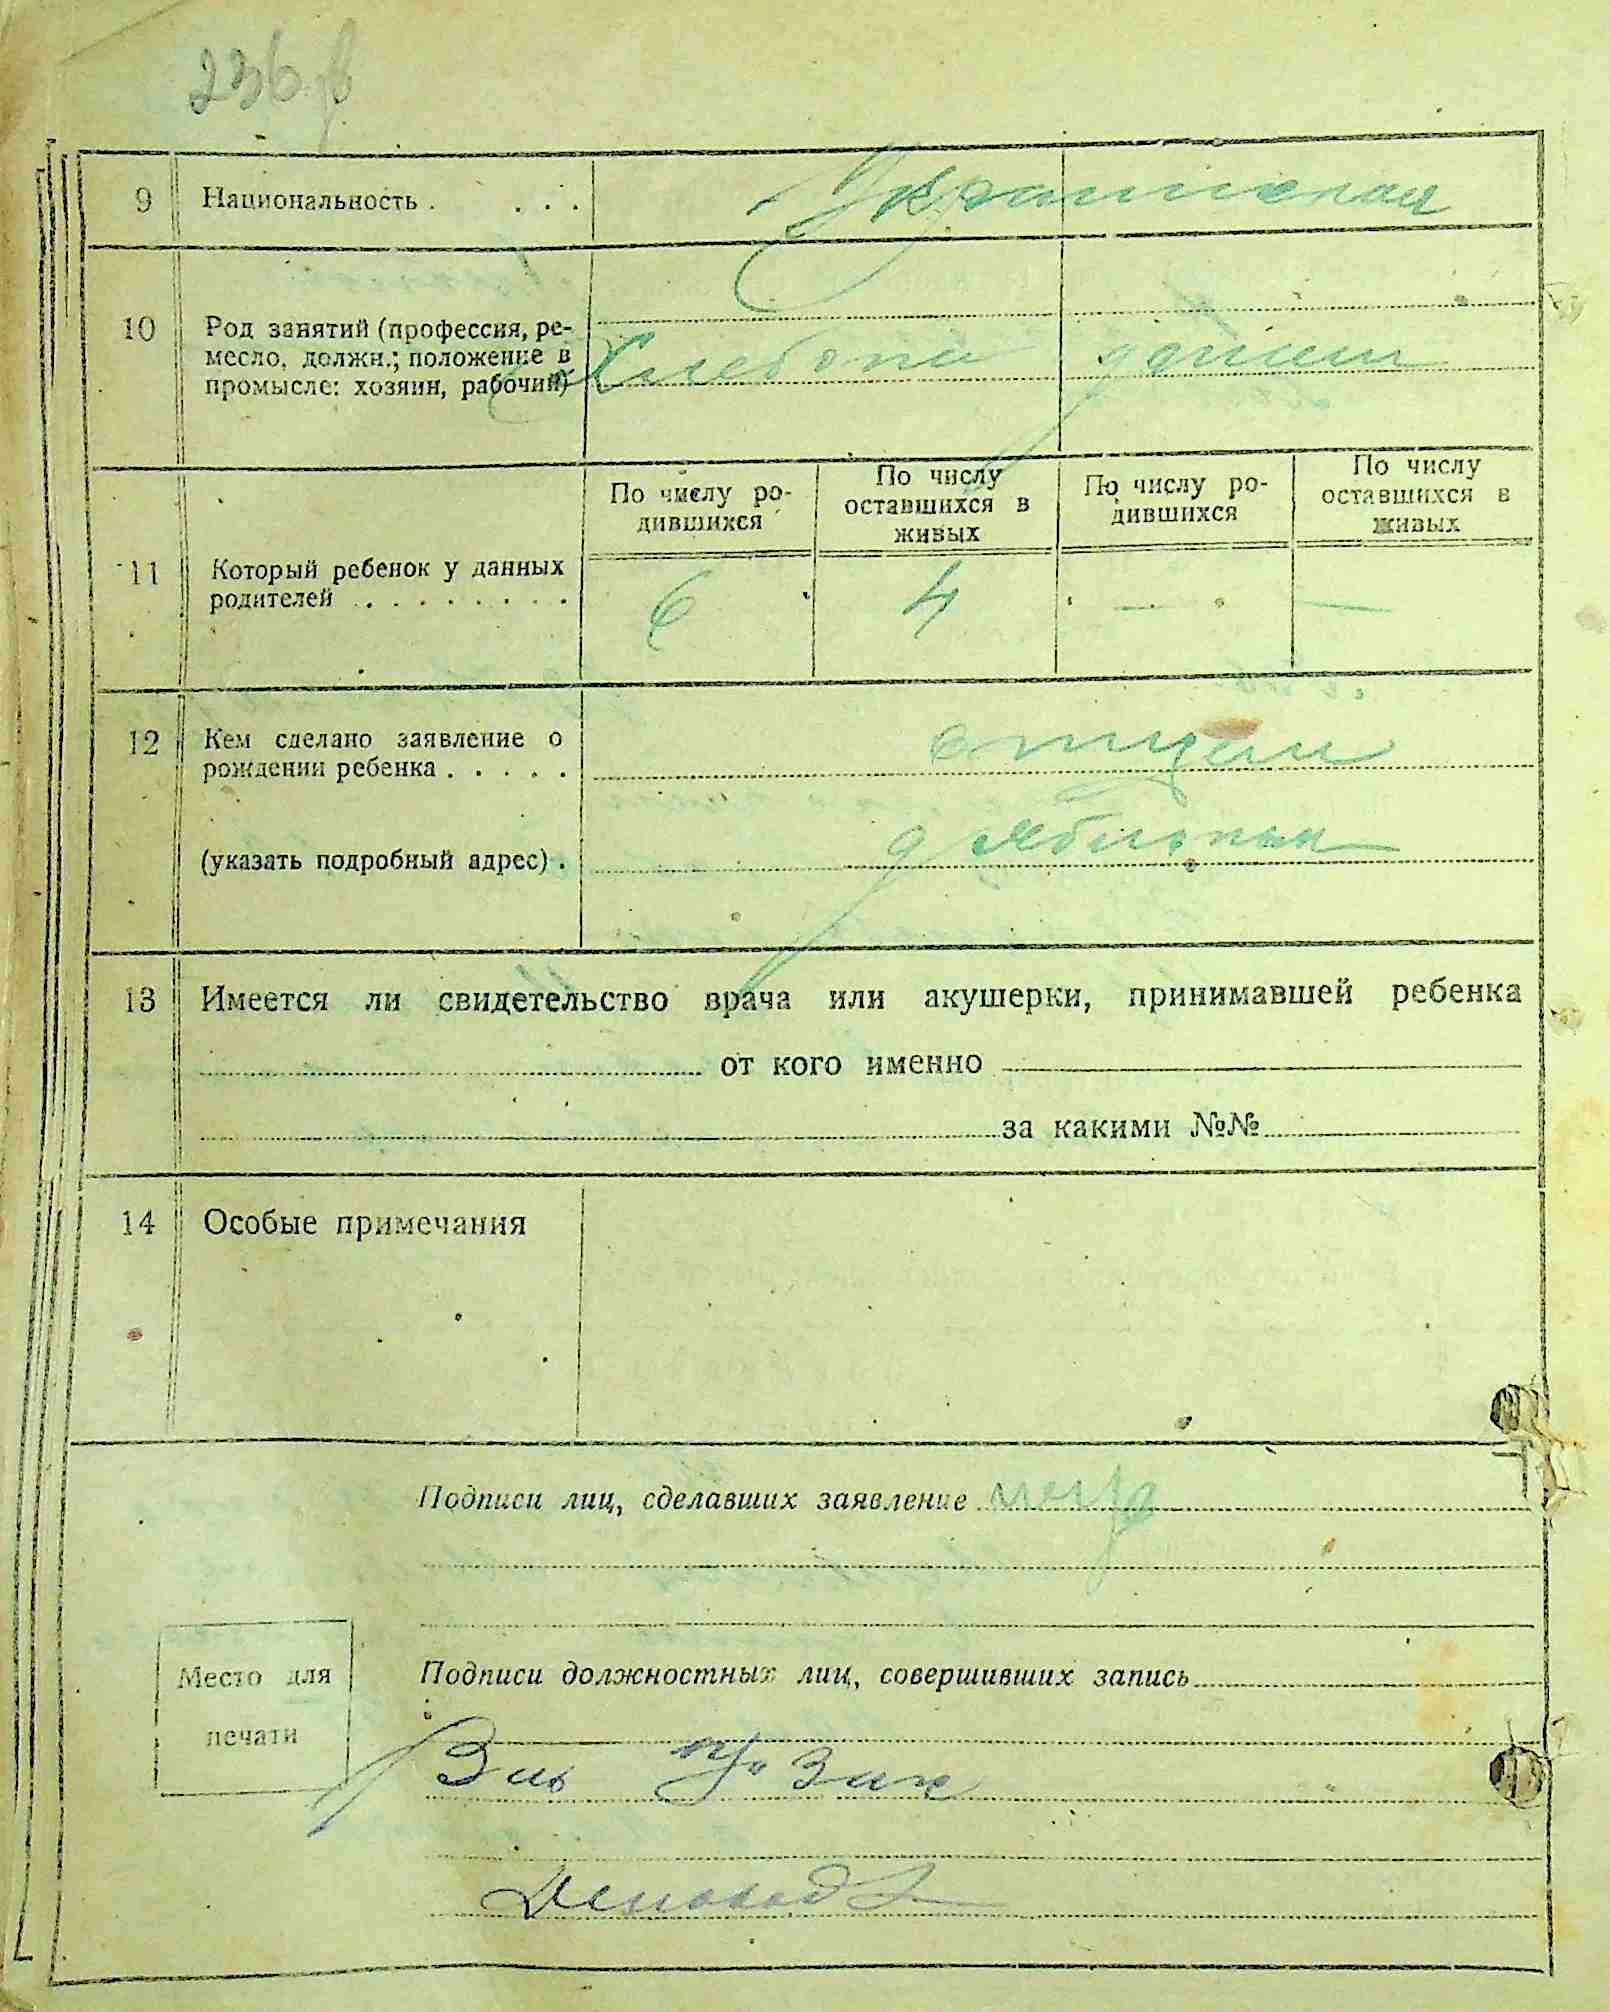 236
9 Национальность . . . . Украинская
10 Род занятий (профессия, ре-
месло, должн.; положение в
промысле: хозяин, рабочий)
Хлебопа
По числу ро-
дившихся
По числу
оставшихся в
живых
По числу ро-
дившихся
По числу
оставшихся в
живых
11 Который ребенок у данных
родителей . . . . . . . .
6 4 — —
12 Кем сделано заявление о
рождении ребенка . . . . .
отцом
(указать подробный адрес) .
13 Имеется ли свидетельство врача или акушерки, принимавшей ребенка
от кого именно
за какими №№
14 Особые примечания
Подписи лиц, сделавших заявление
Место для
печати
Подписи должностных лиц, совершивших запись